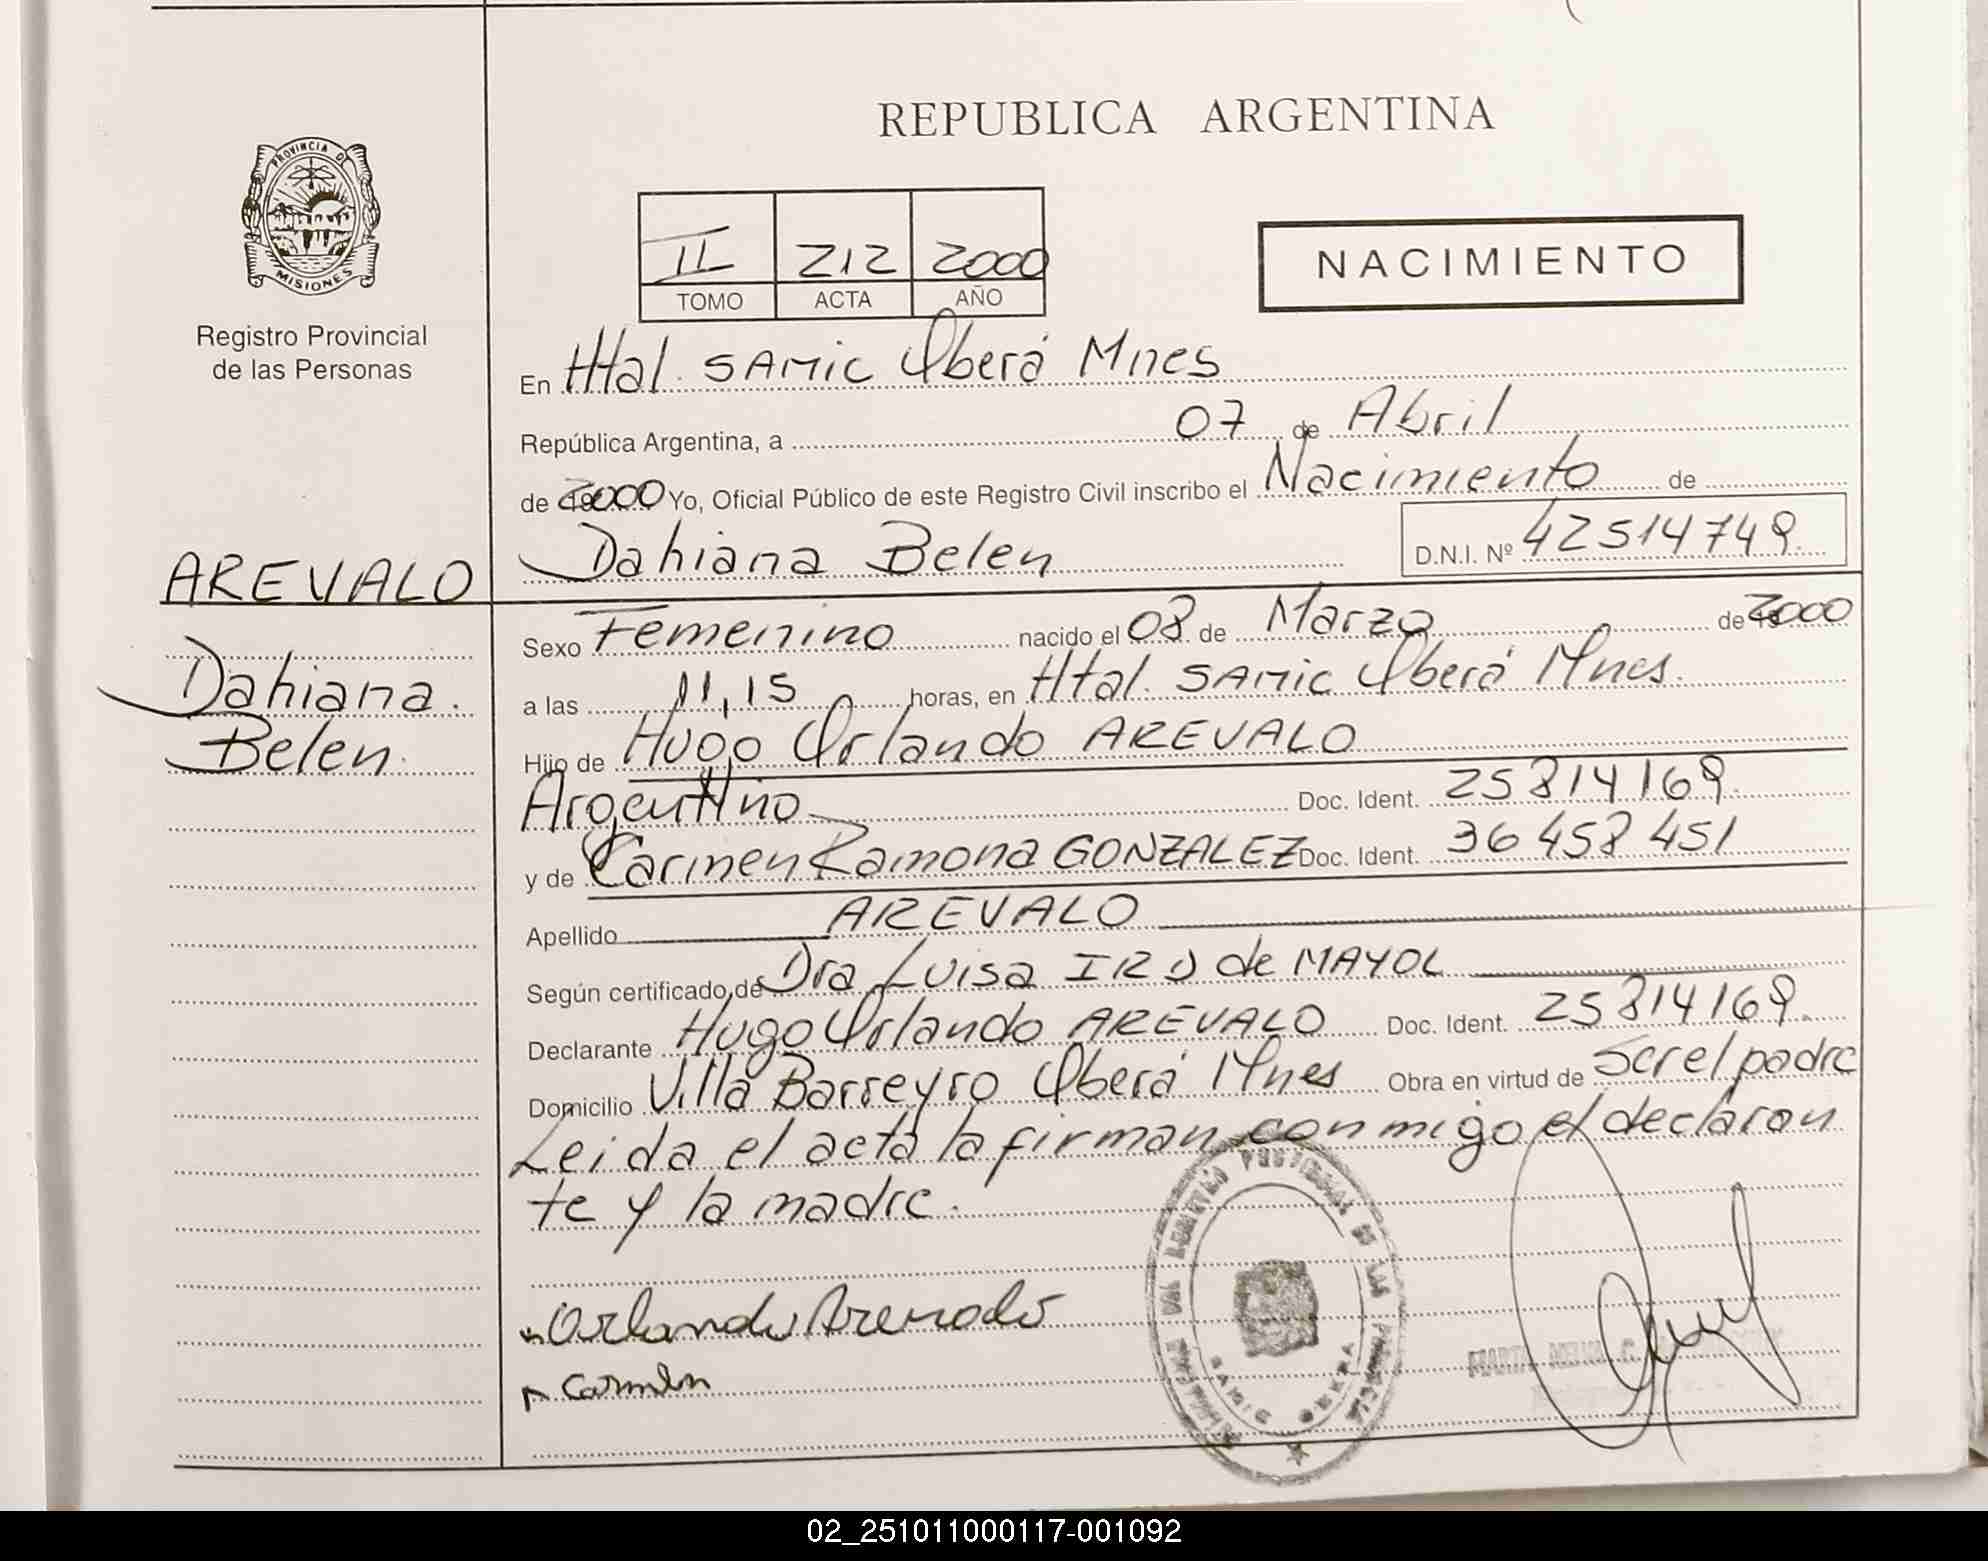 REPUBLICA ARGENTINA
PROVINCIA DE
MISIONES
Registro Provincial
de las Personas
II 212 2000
TOMO ACTA AÑO
NACIMIENTO
En Htal. SAMIC Oberá Mnes
República Argentina, a 07 de Abril
de 2000 Yo, Oficial Público de este Registro Civil inscribo el Nacimiento de
Dahiana Belen D.N.I. Nº 42514749.
AREVALO
Dahiana.
Belen.
Sexo Femenino nacido el 08 de Marzo de 2000
a las 11,15 horas, en Htal. SAMIC Oberá Mnes.
Hijo de Hugo Orlando AREVALO
Argentino Doc. Ident. 25814169.
y de Carmen Ramona GONZALEZ Doc. Ident. 36458451
Apellido AREVALO
Según certificado de Dra Luisa de MAYOL
Declarante Hugo Orlando AREVALO Doc. Ident. 25814169.
Domicilio Villa Barreyro Oberá Mnes Obra en virtud de Ser el padre
Leida el acta la firman conmigo el declaran
te y la madre.
Orlando Arevalo
Carmen
SAMIC OBERA
02_251011000117-001092